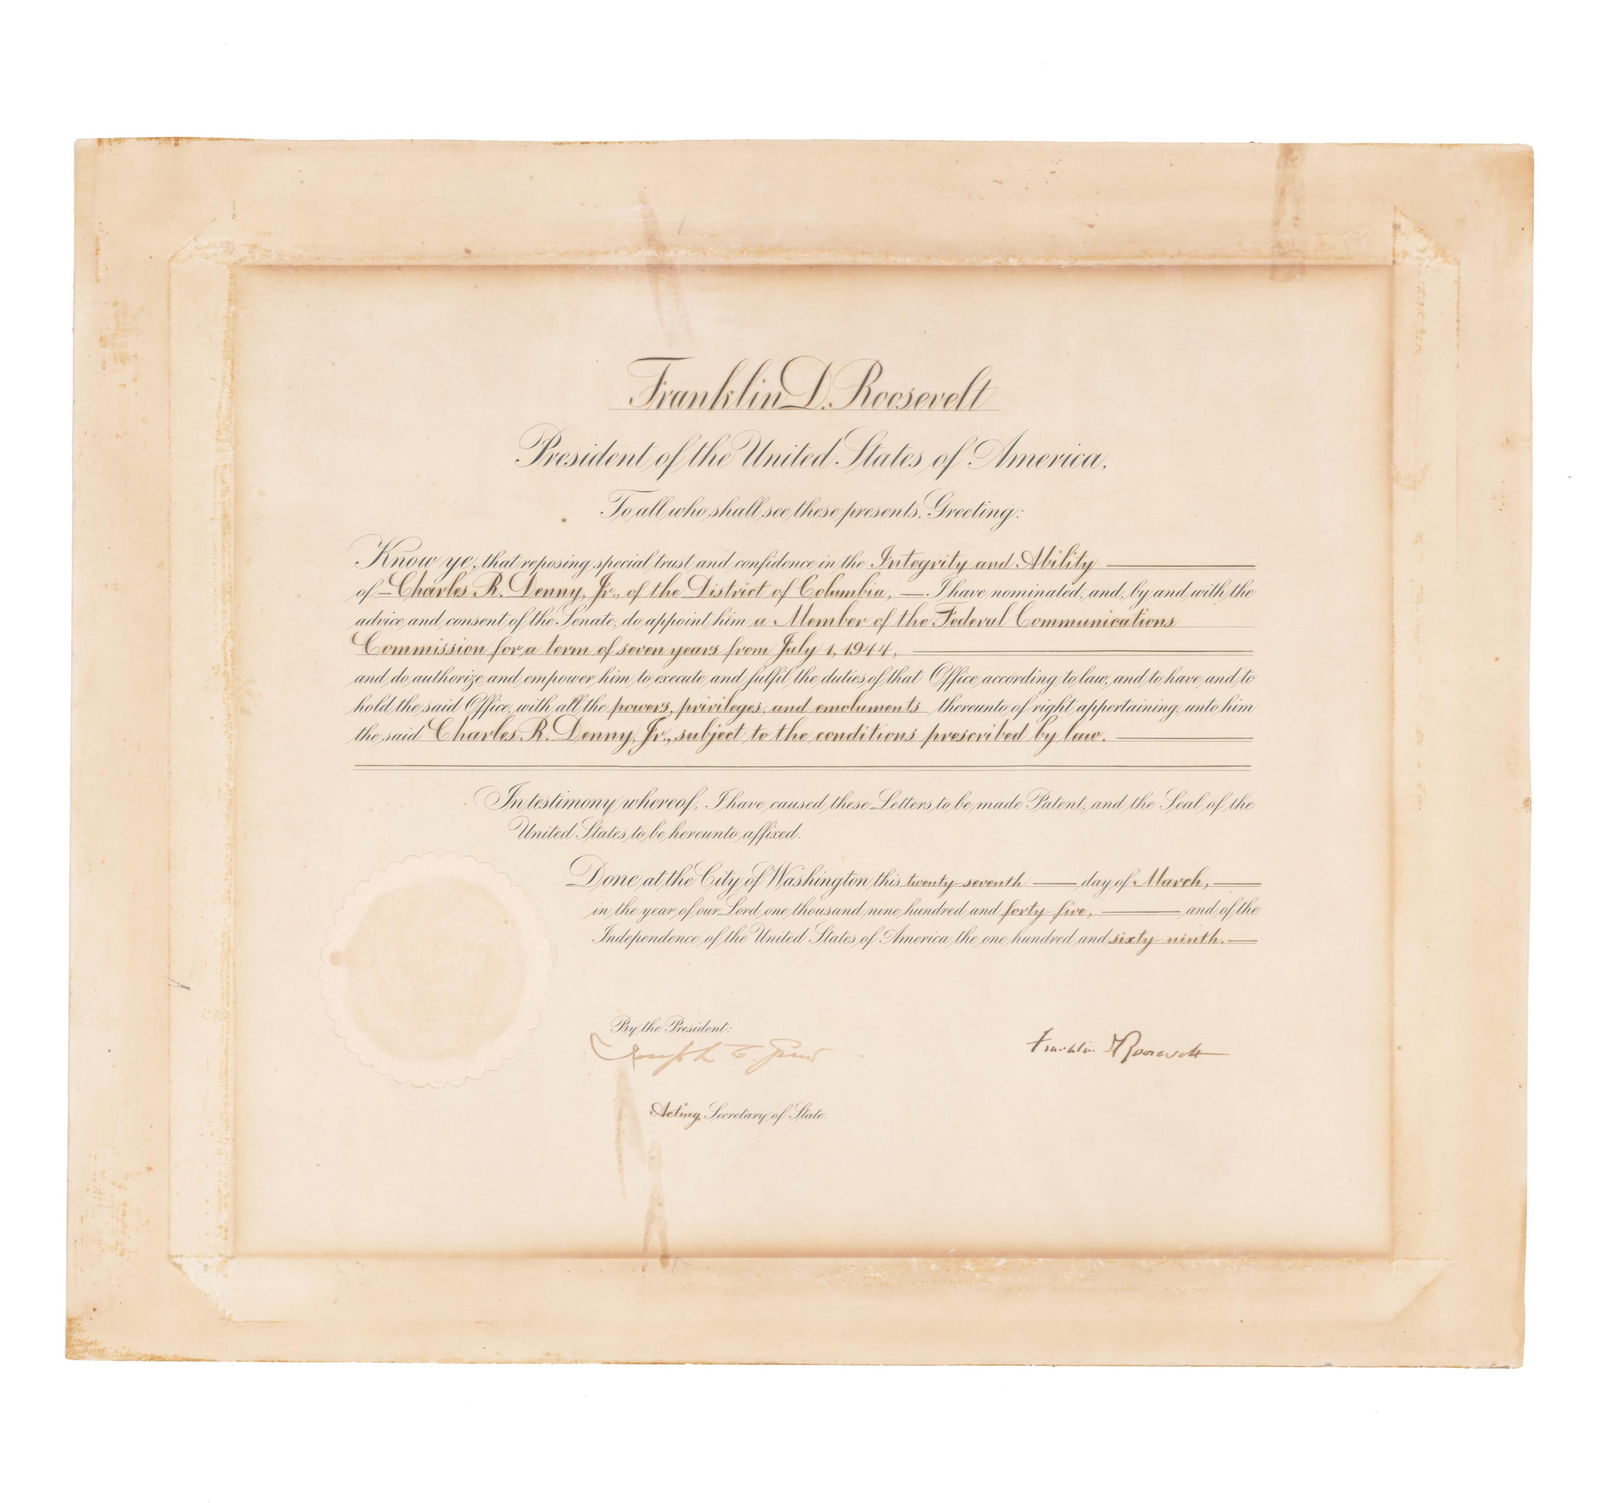 Franklin D. Roosevelt
President of the United States of America.
To all who shall see these presents, Greeting:
Know ye, that reposing special trust and confidence in the Integrity and Ability
of Charles R. Denny, Jr., of the District of Columbia, I have nominated, and, by and with the
advice and consent of the Senate, do appoint him a Member of the Federal Communications
Commission for a term of seven years from July 1, 1944,
and do authorize and empower him to execute and fulfil the duties of that Office according to law, and to have and to
hold the said Office, with all the powers, privileges, and emoluments thereunto of right appertaining, unto him
the said Charles R. Denny, Jr., subject to the conditions prescribed by law.
In testimony whereof, I have caused these Letters to be made Patent, and the Seal of the
United States to be hereunto affixed.
Done at the City of Washington this twenty-seventh day of March,
in the year of our Lord one thousand nine hundred and forty-five, and of the
Independence of the United States of America the one hundred and sixty-ninth.
By the President:
Joseph C. Grew
Franklin D Roosevelt
Acting Secretary of State.